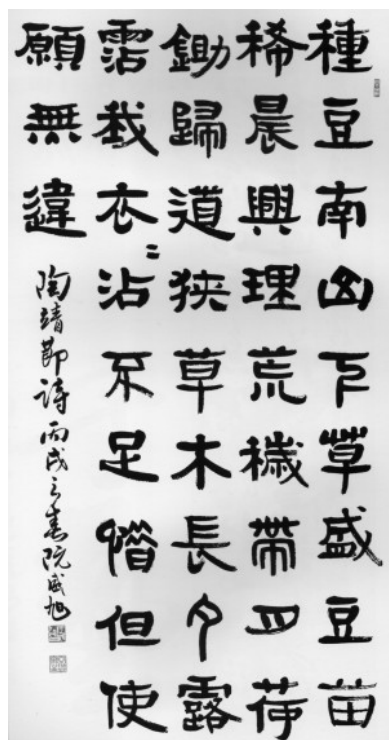 種豆南山下草盛豆苗
稀晨興理荒穢帶月荷
鋤歸道狹草木長夕露
霑我衣〻沾不足惜但使
願無違
陶靖節詩丙戌之春阮威旭